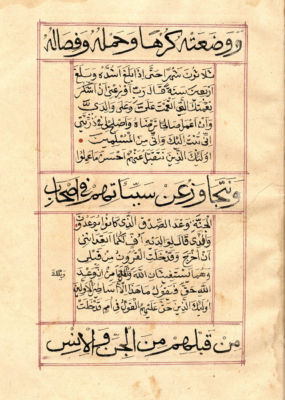 ووضعته كرها وحمله وفصاله
ثلاثون شهرا حتى إذا بلغ أشده وبلغ
أربعين سنة قال رب أوزعني أن أشكر
نعمتك التي أنعمت علي وعلى والدي
وأن أعمل صالحا ترضاه وأصلح لي في ذريتي
إني تبت إليك وإني من المسلمين
أولئك الذين نتقبل عنهم أحسن ما عملوا
ونتجاوز عن سيئاتهم في أصحاب
الجنة وعد الصدق الذي كانوا يوعدون
والذي قال لوالديه أف لكما أتعدانني
أن أخرج وقد خلت القرون من قبلي
وهما يستغيثان الله إن وعد
ويلك
الله حق فيقول ما هذا إلا أساطير الأولين
أولئك الذين حق عليهم القول في أمم قد خلت
من قبلهم من الجن والإنس